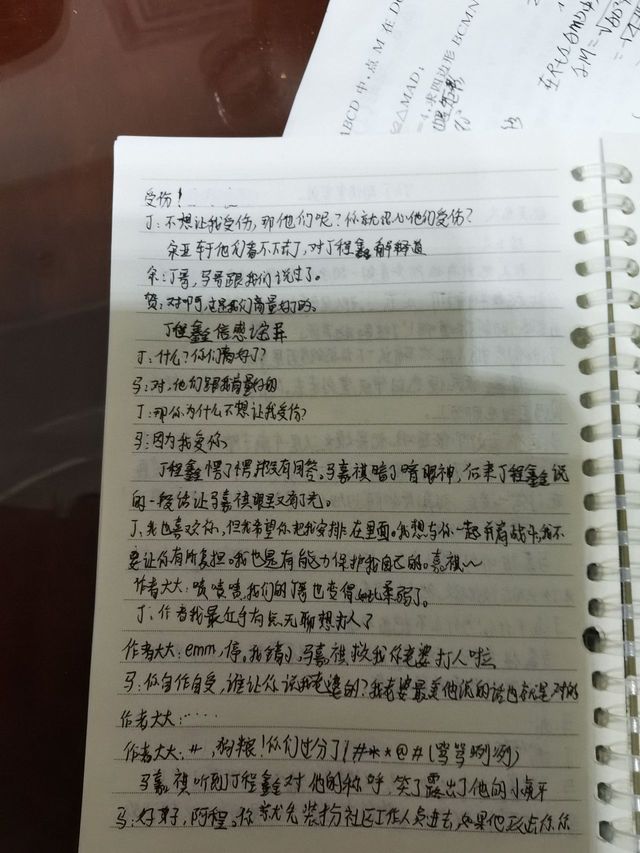 ABCD 中,点 M 在 D
△MAD;
=4,求四边形 BCMN
在Rt△
受伤!
丁:不想让我受伤,那他们呢?你就忍心他们受伤?
宋亚轩他们看不下去了,对丁程鑫解释道
宋:丁哥,马哥跟我们说过了。
贺:对啊,这是我们商量好了的。
丁程鑫倍感诧异
丁:什么?你们商量好了?
马:对,他们跟我商量好的
丁:那你为什么不想让我受伤?
马:因为我爱你
丁程鑫愣了愣并没有回答。马嘉祺暗了暗眼神,后来丁程鑫说
的一段话让马嘉祺眼里又有了光。
丁:我也喜欢你,但我希望你把我安排在里面。我想与你一起并肩战斗,我不
要让你有所负担。我也是有能力保护我自己的。嘉祺~
作者大大:啧啧啧,我们的丁哥也变得如此柔弱了。
丁:作者我最近手有点无聊想打人了
作者大大:emm,停。我错了,马嘉祺救我你老婆打人啦
马:你自作自受,谁让你说我老婆的?我老婆最美他说的话也就是对的
作者大大:····
作者大大:#,狗粮!你们过分了!#**@#(骂骂咧咧)
马嘉祺听到丁程鑫对他的称呼,笑了露出了他的小虎牙
马:好好,阿程。你就先装扮社区工作人员进去,如果他